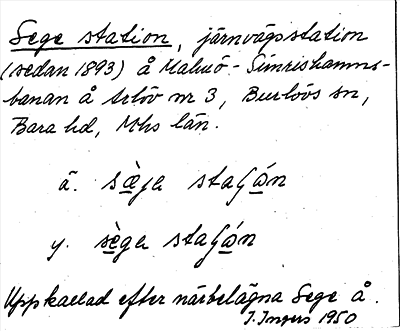 Sege station, järnvägsstation
(sedan 1893) å Malmö-Simrishamns-
banan å Arlöv nr 3, Burlövs sn,
Bara hd, Mhs län.
ä. sæ̀ja staʃón
y. sèga staʃón
Uppkallad efter närbelägna Sege å.
I. Ingers 1950